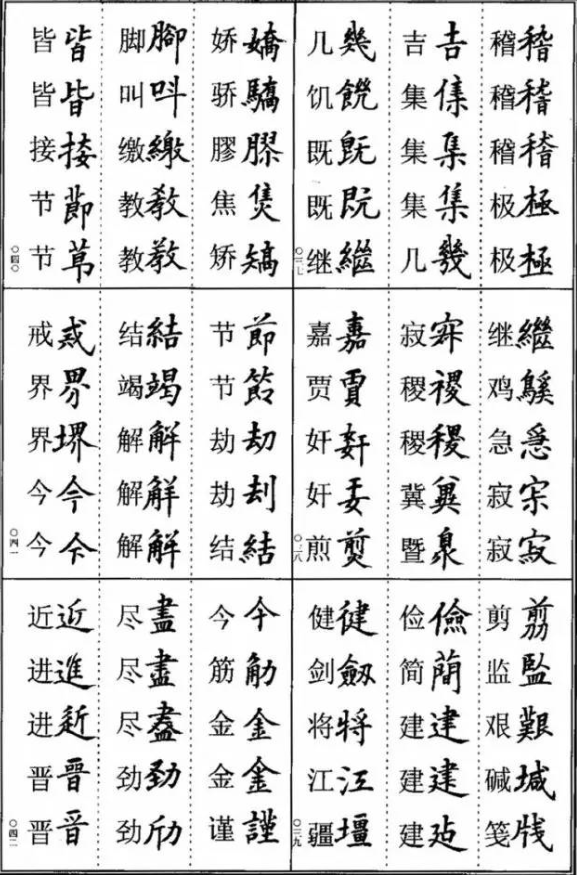 稽稽 稽稽 稽稽 极極 极極
吉吉 集 集集 集集 几幾
几幾 饥饑 既既 既既 继繼
〇三七
继繼 鸡鷄 急急 寂 寂寂
寂 稷稷 稷稷 冀冀 暨
嘉嘉 贾賈 奸姧 奸 煎
〇三八
剪剪 监監 艰艱 碱堿 笺牋
俭儉 简蕳 建建 建建 建
健健 剑劔 将将 江江 疆壃
〇三九
娇嬌 骄驕 膠膠 焦焦 矫矯
脚腳 叫呌 缴繳 教教 教教
皆皆 皆皆 接接 节節 节
〇四〇
节節 节 劫刧 劫刦 结結
结結 竭竭 解解 解觧 解解
戒戒 界界 界堺 今今 今今
〇四一
今今 筋 金金 金金 谨謹
尽盡 尽盡 尽盡 劲勁 劲
近近 进進 进 晋晉 晋晋
〇四二